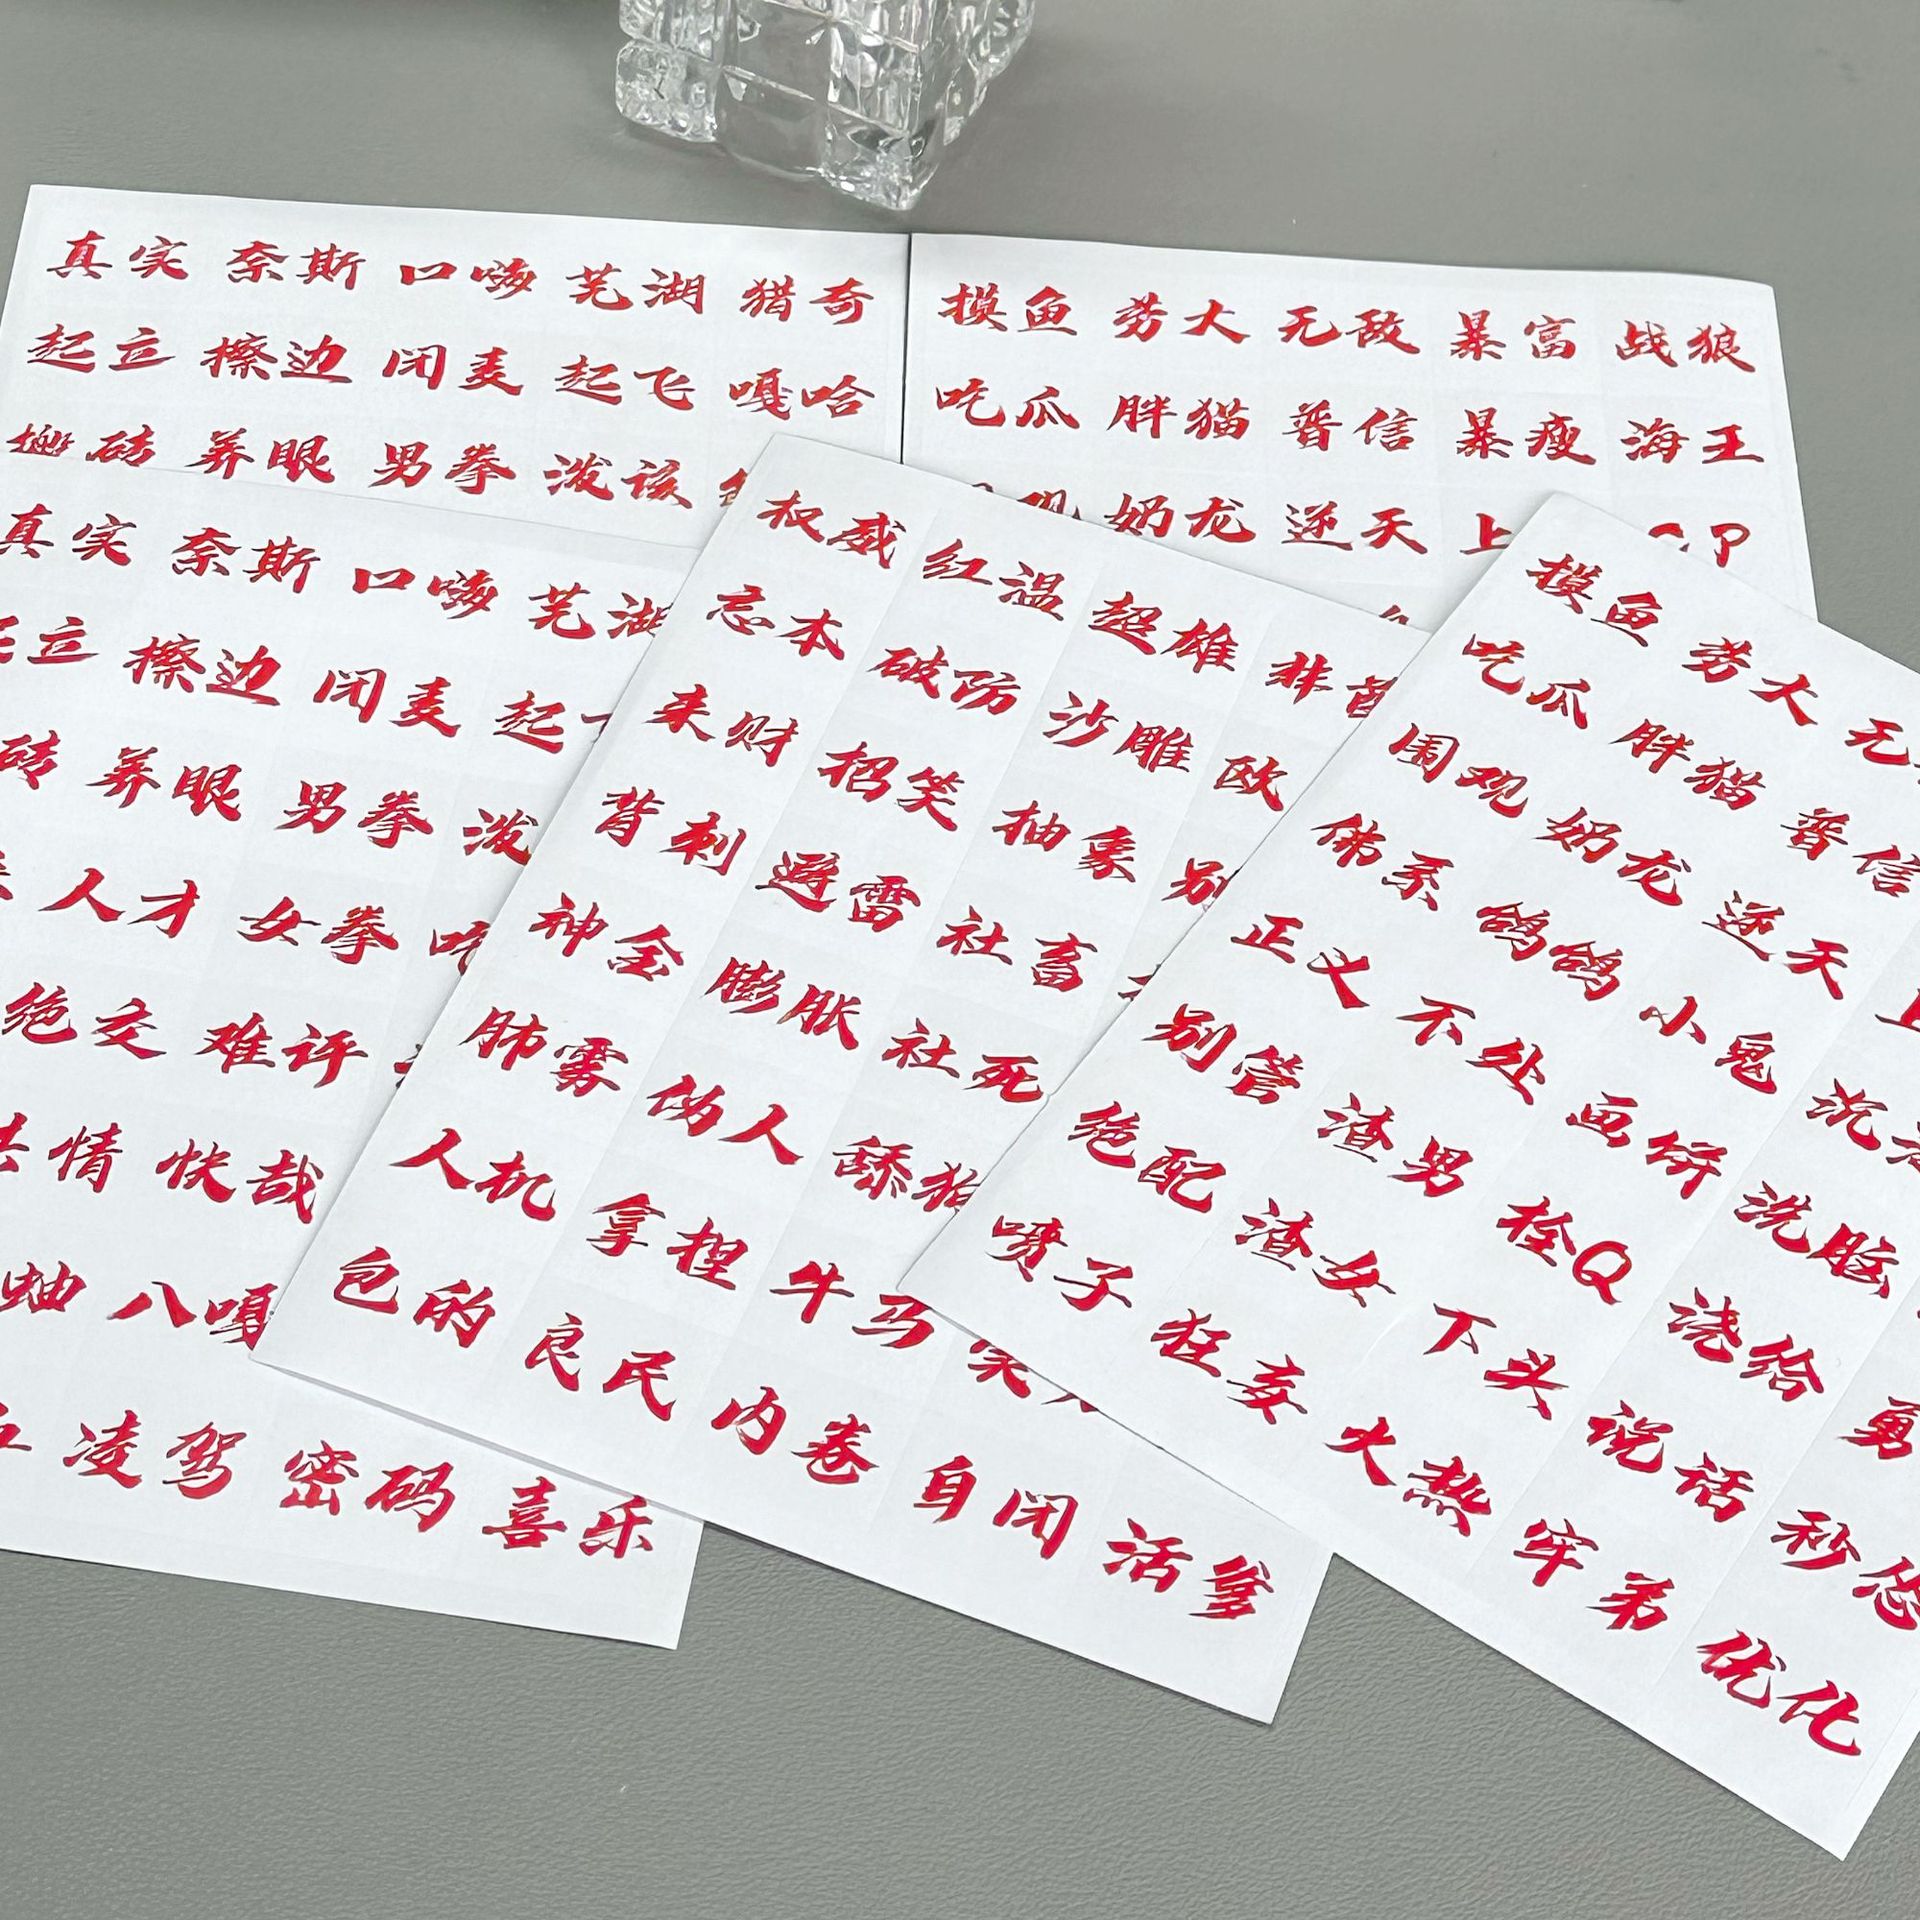 真实 奈斯 口嗨 芜湖 猎奇
起立 擦边 闭麦 起飞 嘎哈
搬砖 养眼 男拳 泼该
摸鱼 劳大 无敌 暴富 战狼
吃瓜 胖猫 普信 暴瘦 海王
奶龙 逆天 上
真实 奈斯 口嗨 芜湖
立 擦边 闭麦 起
砖 养眼 男拳 泼
人才 女拳
绝交 难评
情 快哉
蚰 八嘎
凌驾 密码 喜乐
权威 红温 超雄
忘本 破防 沙雕 欧
来财 招笑 抽象 别
背刺 避雷 社畜
神金 膨胀 社死
肺雾 伪人 舔狗
人机 拿捏 牛马
包的 良民 内卷 自闭 活爹
摸鱼 劳大 无
吃瓜 胖猫 普信
围观 奶龙 逆天 上
佛系 鸽鸽 小鬼 沉
正义 不处 画饼 洗脑
别管 渣男 栓Q 浇给 勇
绝配 渣女 下头 说话 秒怂
喷子 狂妄 火热 牢弟 优化